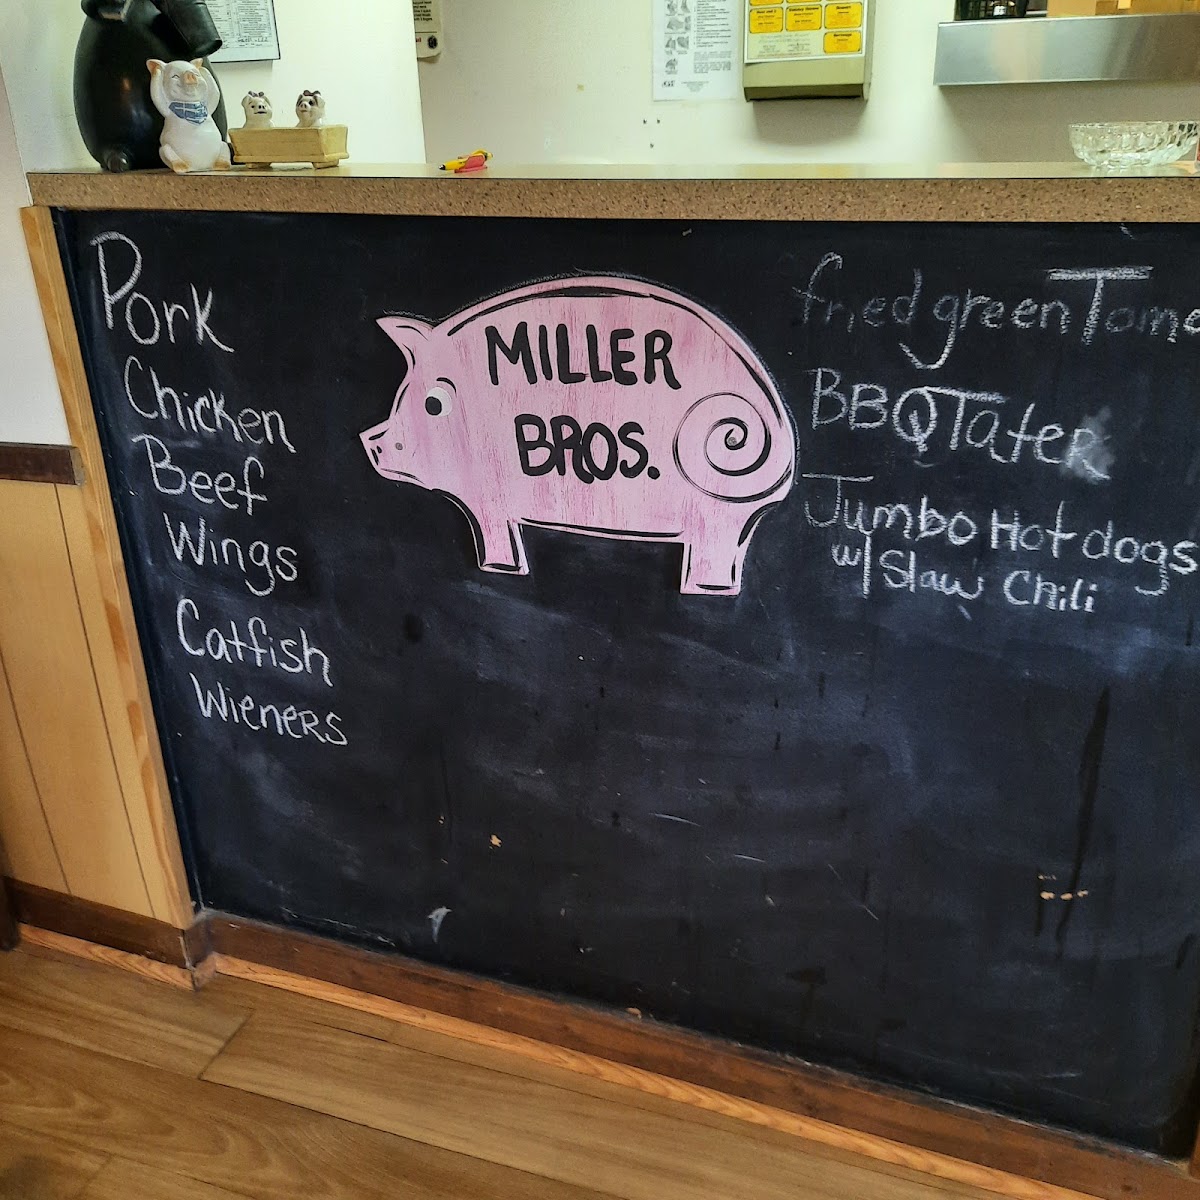 Pork
Chicken
Beef
Wings
Catfish
Wieners
MILLER
BROS.
fried green Tome
BBQ Tater
Jumbo Hot dogs
w/ Slaw Chili